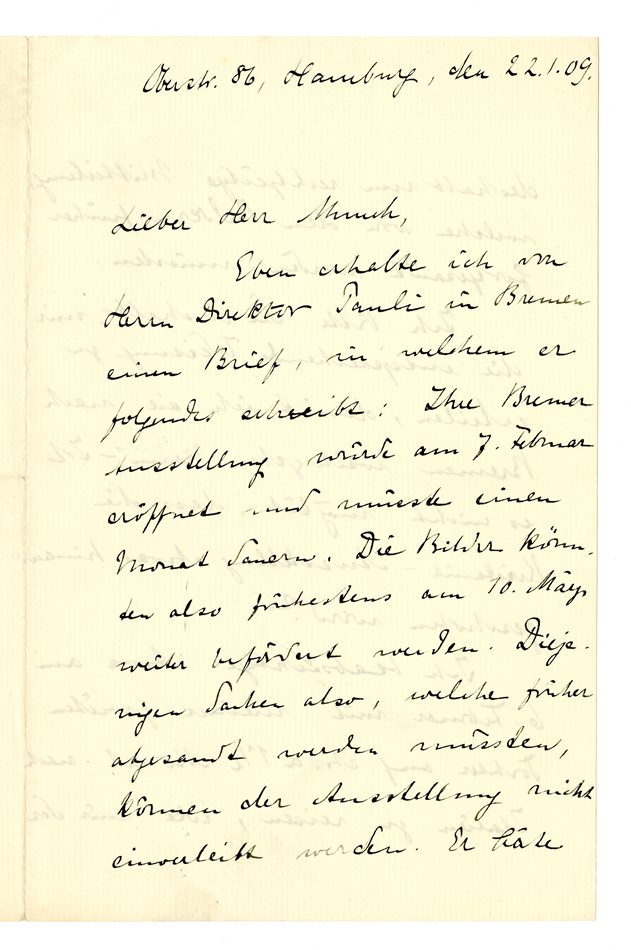 Oberstr. 86, Hamburg, den 22.1.09.
Lieber Herr Munch,
Eben erhalte ich von
Herrn Direktor Pauli in Bremen
einen Brief, in welchem er
folgendes schreibt: Ihre Bremer
Ausstellung würde am 7. Februar
eröffnet und müsste einen
Monat dauern. Die Bilder könn-
ten also frühestens am 10. März
weiter befördert werden. Dieje-
nigen Sachen also, welche früher
abgesandt werden müssten,
können der Ausstellung nicht
einverleibt werden. Er bäte